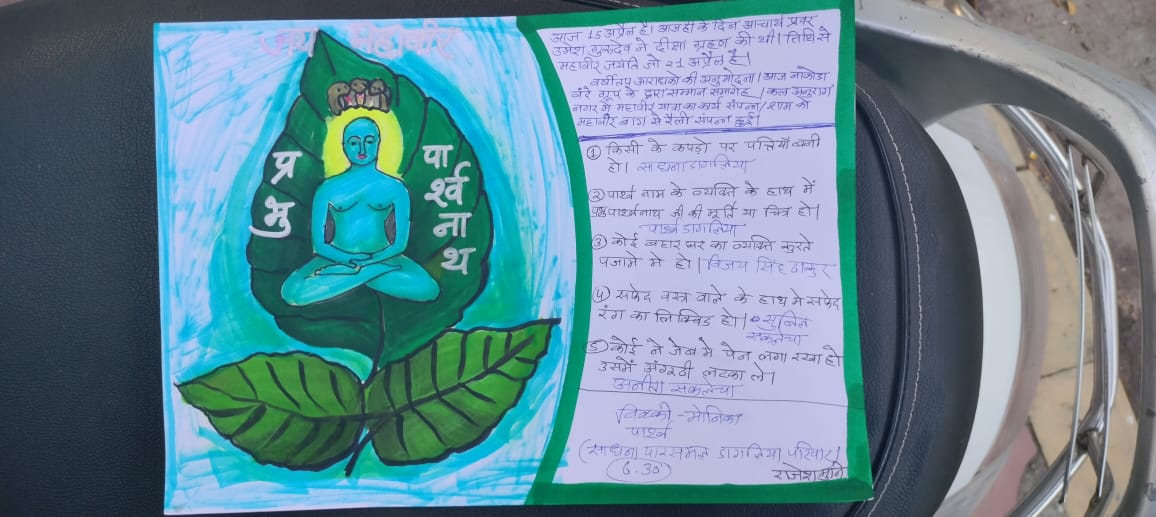 जय महावीर
प्रभु
पार्श्वनाथ
आज 15 अप्रैल है। आज ही के दिन आचार्य प्रवर
उमेश गुरुदेव ने दीक्षा ग्रहण की थी। तिथि से
महावीर जयंति जो 21 अप्रैल है।
वर्षीतप आराधको की अनुमोदना। आज नाकोडा
ग्रुप के द्वारा सम्मान समारोह। कल अनुराग
नगर मे महावीर यात्रा का कार्य संपन्न। शाम को
महावीर बाग से रैली संपन्न हुई।
① किसी के कपड़ो पर पत्तियाँ बनी
हो। साधना डागलिया
② पार्श्व नाम के व्यक्ति के हाथ में
प्रभु पार्श्वनाथ जी की मूर्ति या चित्र हो।
पार्श्व डागलिया
③ कोई बहार का व्यक्ति कुरते
पजामे मे हो। विजय सिंह ठाकुर
④ सफेद वस्त्र वाले के हाथ मे सफेद
रंग का लिक्विड हो।
सकलेचा
⑤ कोई ने जेब मे पेन लगा रखा हो
उसमें अंगूठी लटका ले।
अनीता सकलेचा
विक्की - मोनिका
पार्श्व
(साधना पारसमल डागलिया परिवार)
(6.30)
राजेश मुनि